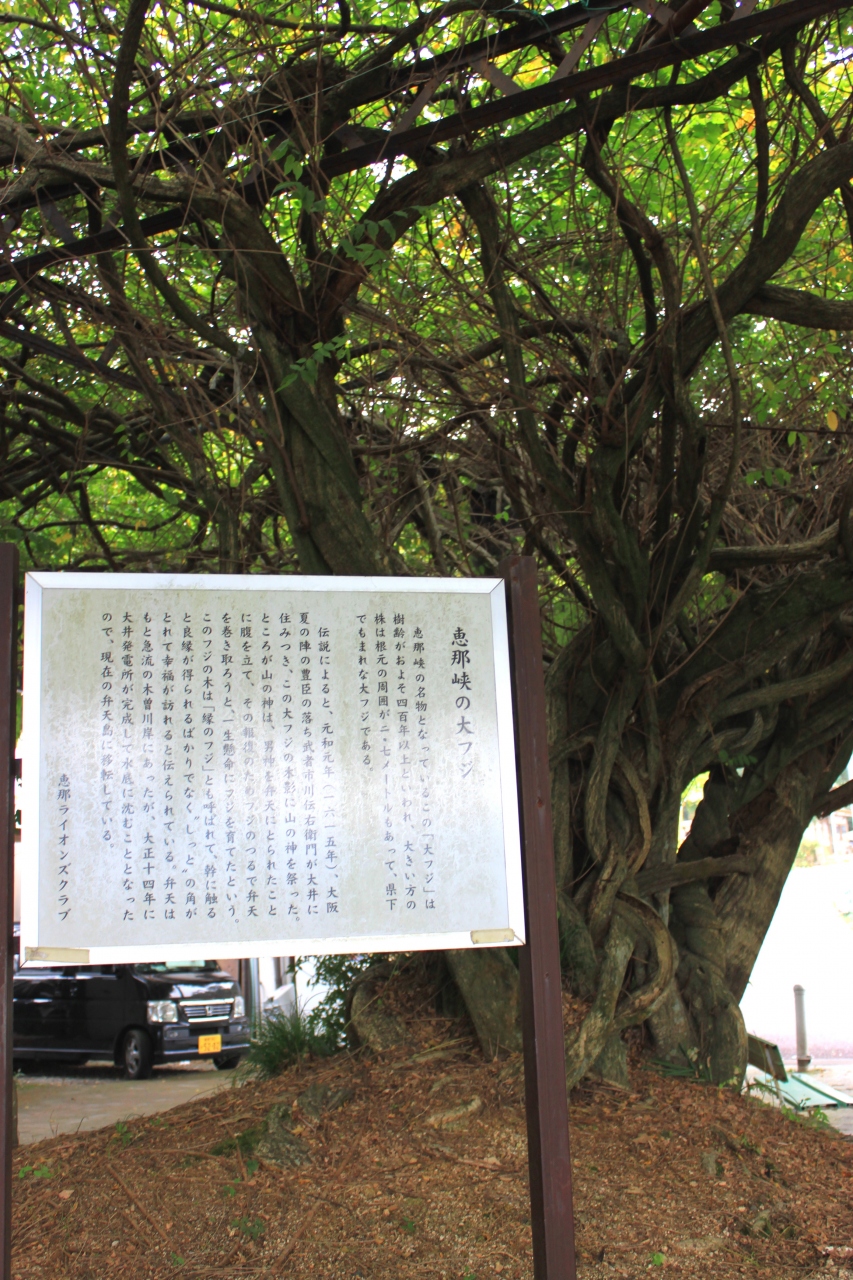 恵那峡の大フジ
恵那峡の名物となっているこの「大フジ」は
樹齢がおよそ四百年以上といわれ、大きい方の
株は根元の周囲が二・七メートルもあって、県下
でもまれな大フジである。
伝説によると、元和元年（一六一五年）、大阪
夏の陣の豊臣の落ち武者市川伝右衛門が大井に
住みつき、この大フジの木影に山の神を祭った。
ところが山の神は、男神を弁天にとられたこと
に腹を立て、その報復のためフジのつるで弁天
を巻き取ろうと、一生懸命にフジを育てたという。
このフジの木は「縁のフジ」とも呼ばれて、幹に触る
と良縁が得られるばかりでなく〝しっと〟の角が
とれて幸福が訪れると伝えられている。弁天は
もと急流の木曽川岸にあったが、大正十四年に
大井発電所が完成して水底に沈むこととなった
ので、現在の弁天島に移転している。
恵那ライオンズクラブ